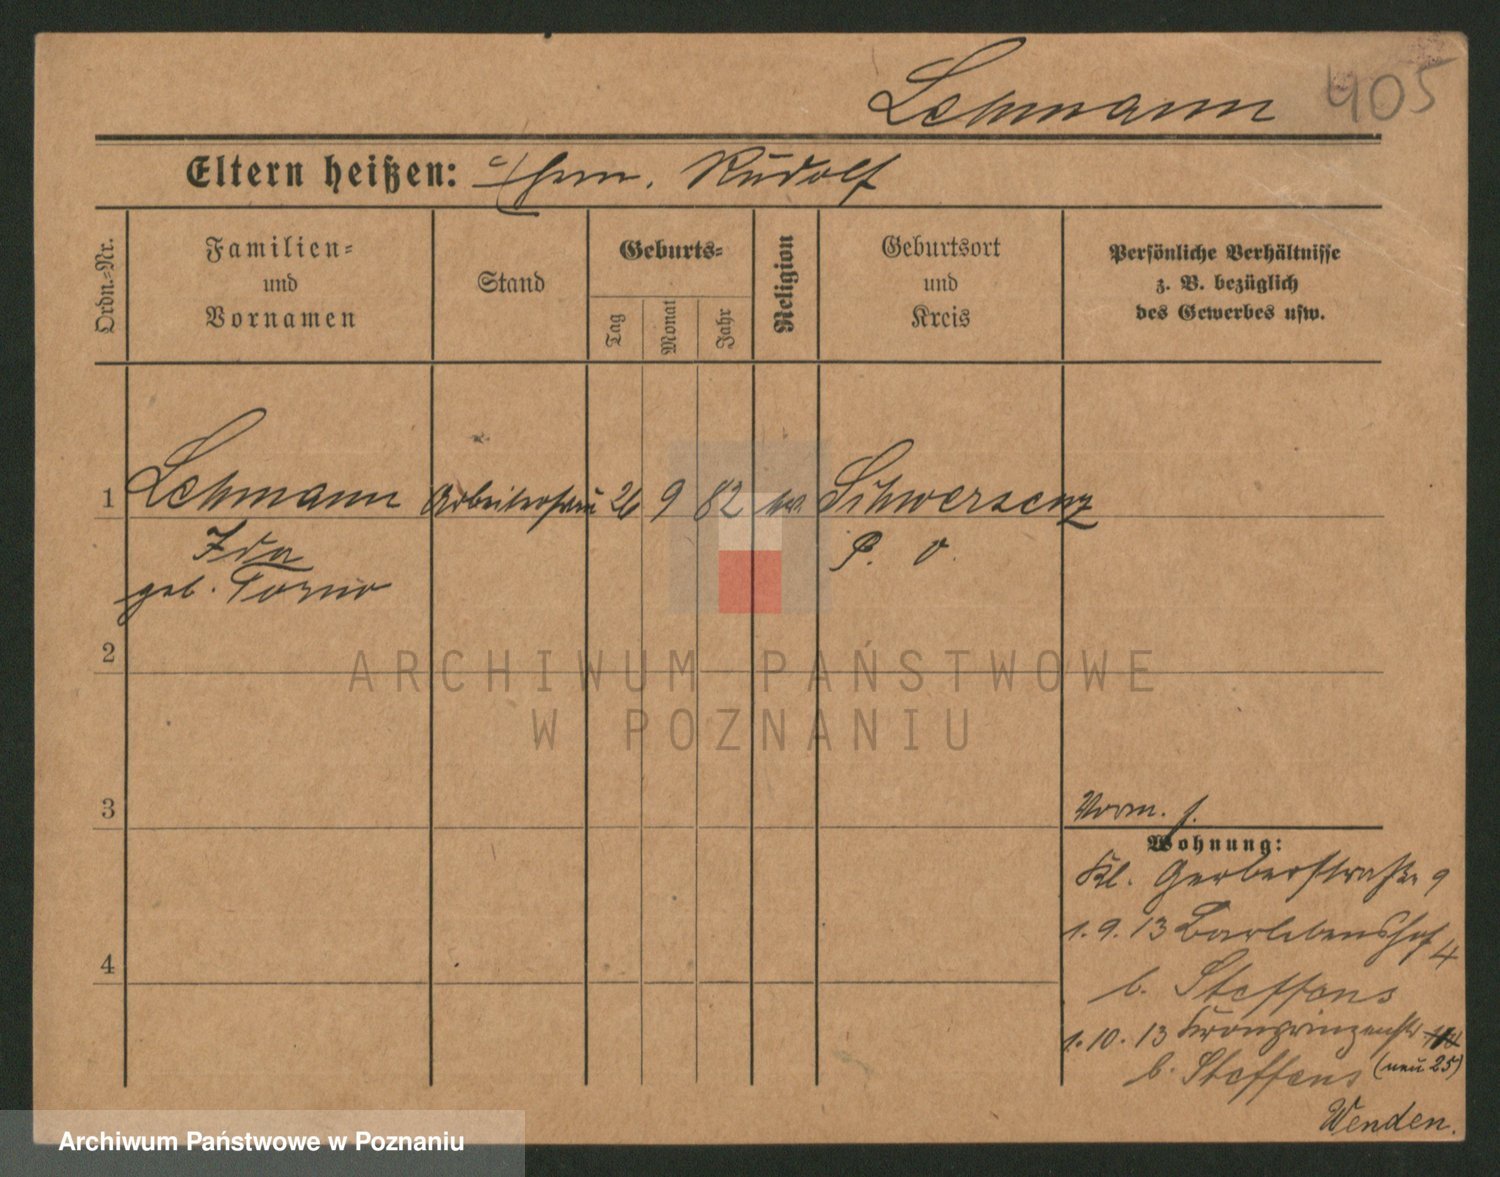 Lehmann 405
Eltern heißen: Ehem. Rudolf
Ordn.-Nr.
Familien-
und
Vornamen
Stand
Geburts-
Tag
Monat
Jahr
Religion
Geburtsort
und
Kreis
Persönliche Verhältnisse
z. B. bezüglich
des Gewerbes usw.
1 Lehmann Arbeiterfrau 26 9 82 ev. Schwersenz
Ida P. O.
geb. Torno
2
ARCHIWUM PAŃSTWOWE
W POZNANIU
3
Vorm. s.
Wohnung:
Kl. Gerberstraße 9
1. 9. 13 Barlebenshof 4
b. Steffens
1. 10. 13 Kronprinzenstr
b. Steffens (neu 25)
4
Wenden.
Archiwum Państwowe w Poznaniu